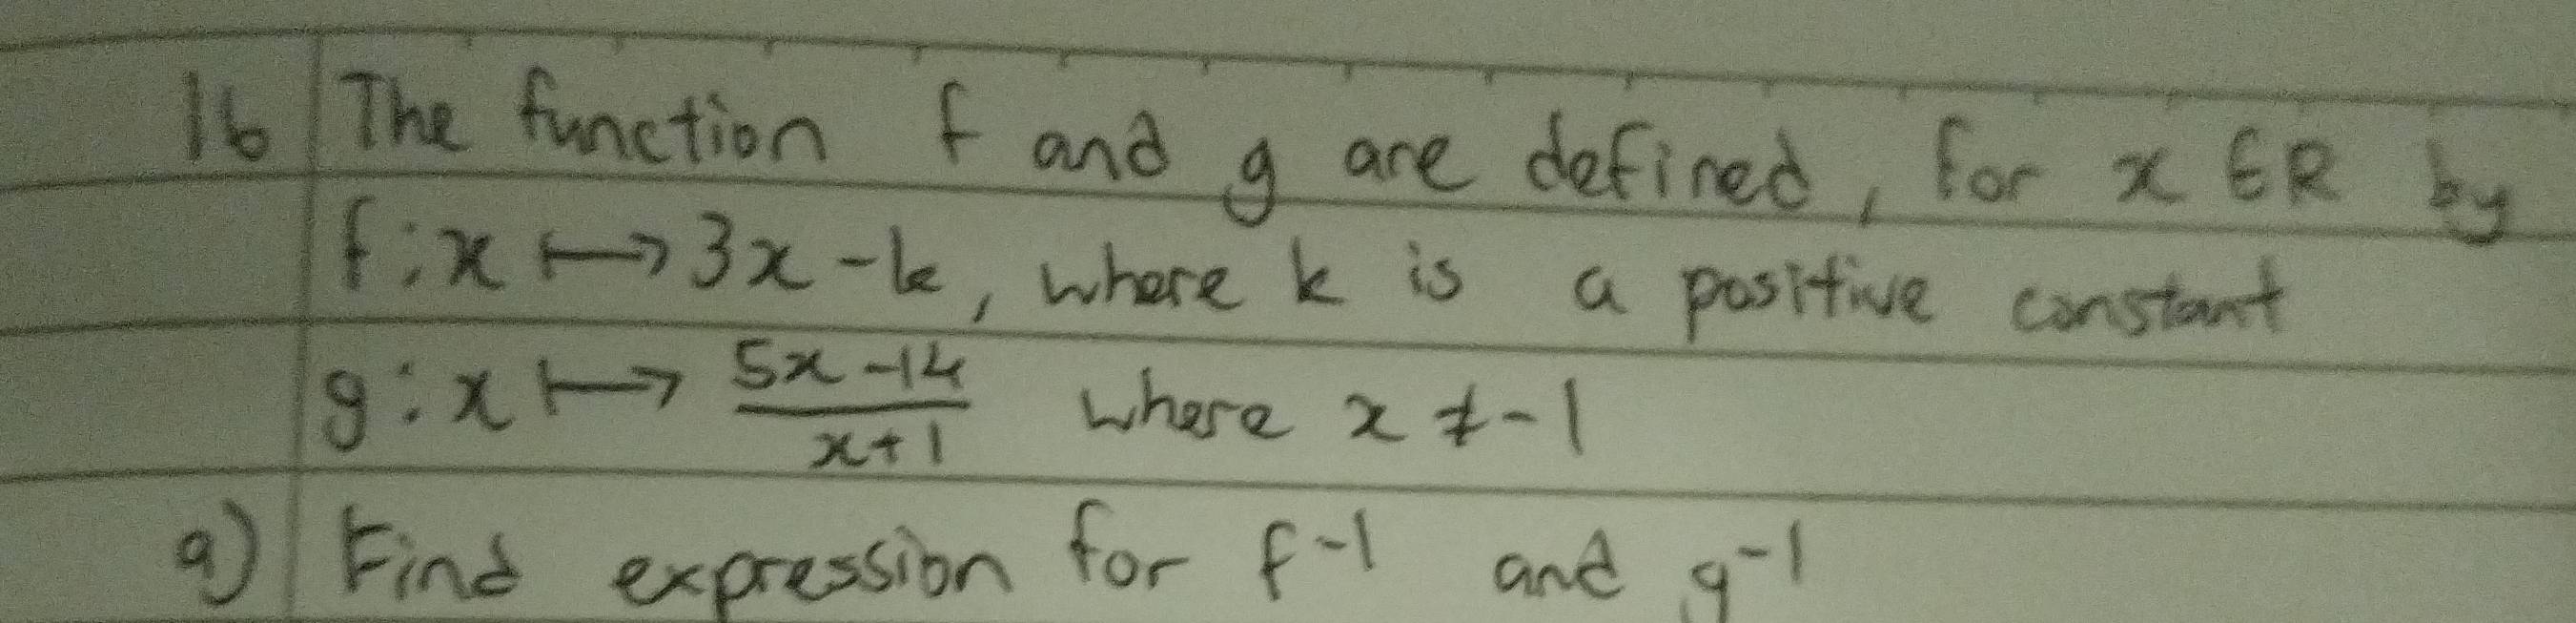 16 The function f and g are defined, for x ∈ R by
f : x ↦ 3x - k, where k is a positive constant
g : x ↦ (5x - 14)/(x + 1) where x ≠ -1
a) Find expression for f⁻¹ and g⁻¹